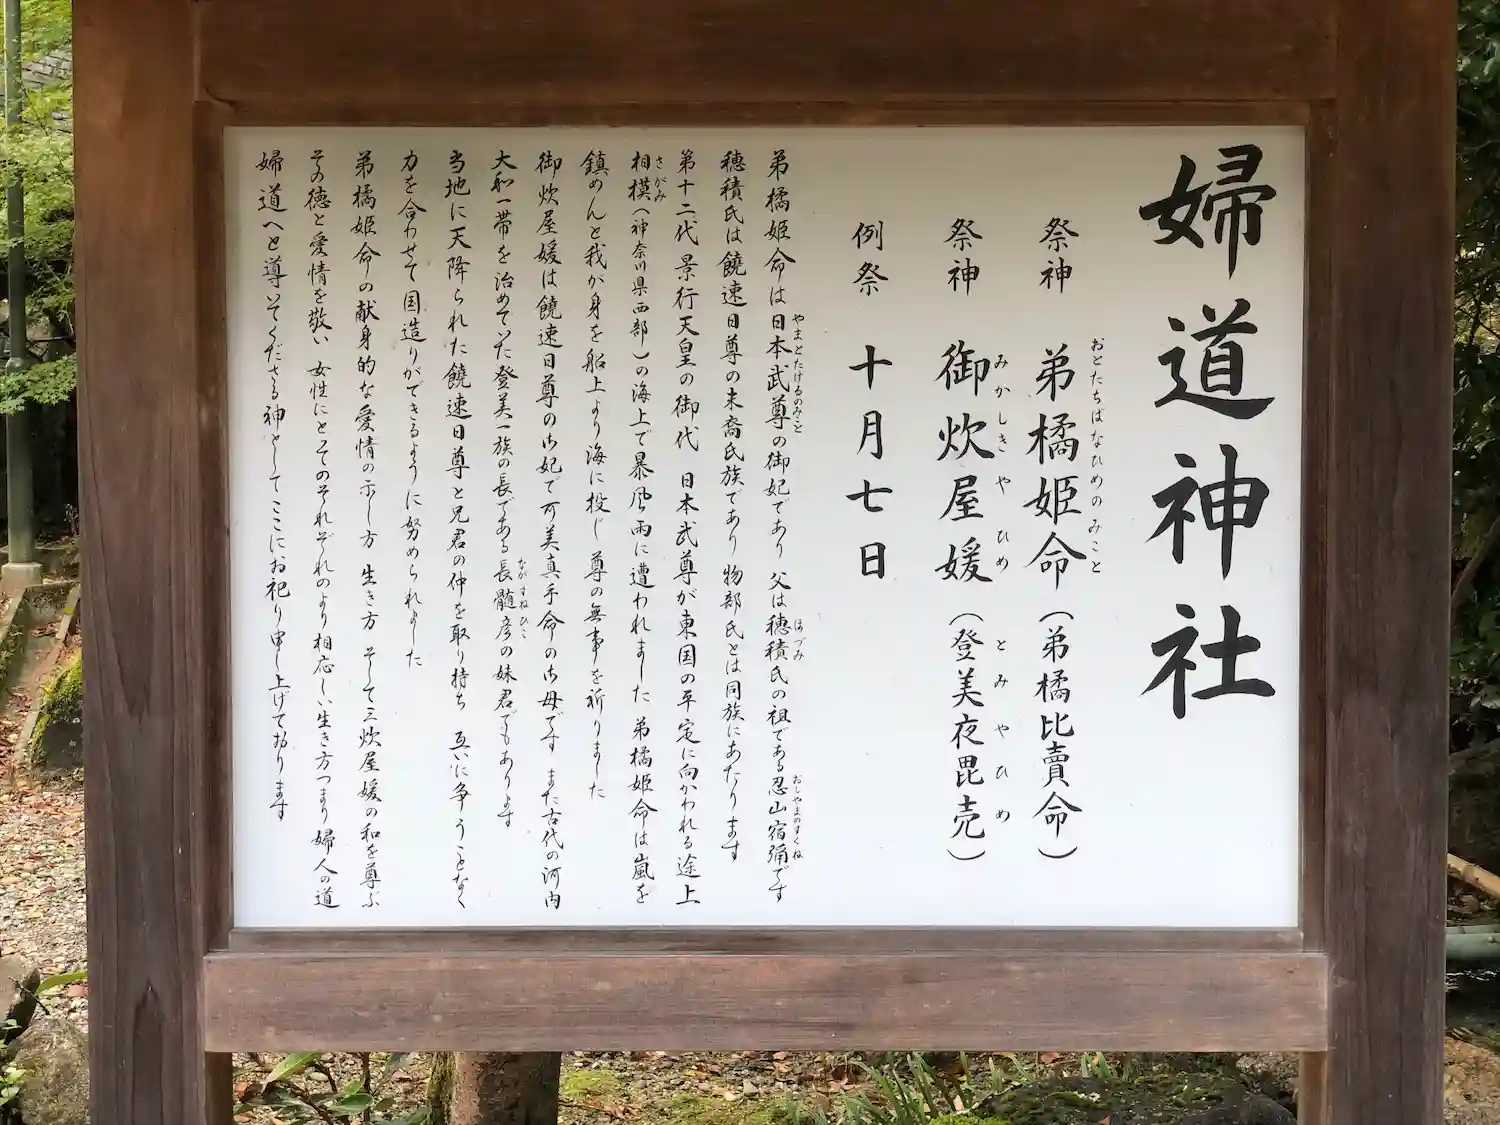 婦道神社
祭神 弟橘姫命(弟橘比賣命)
おとたちばなひめのみこと
祭神 御炊屋媛(登美夜毘売)
みかしきやひめ とみやひめ
例祭 十月七日
弟橘姫命は日本武尊の御妃であり 父は穂積氏の祖である忍山宿彌です
やまとたけるのみこと ほづみ おしやまのすくね
穂積氏は饒速日尊の末裔氏族であり 物部氏とは同族にあたります
第十二代 景行天皇の御代 日本武尊が東国の平定に向かわれる途上
相模(神奈川県西部)の海上で暴風雨に遭われました 弟橘姫命は嵐を
さがみ
鎮めんと我が身を船上より海に投じ 尊の無事を祈りました
御炊屋媛は饒速日尊の御妃で可美真手命の御母です また古代の河内
大和一帯を治めていた登美一族の長である長髄彦の妹君でもあります
ながすねひこ
当地に天降られた饒速日尊と兄君の仲を取り持ち 互いに争うことなく
力を合わせて国造りができるように努められました
弟橘姫命の献身的な愛情の示し方 生き方 そして三炊屋媛の和を尊ぶ
その徳と愛情を敬い 女性にとってのそれぞれのより相応しい生き方つまり 婦人の道
婦道へと導いてくださる神としてここにお祀り申し上げております